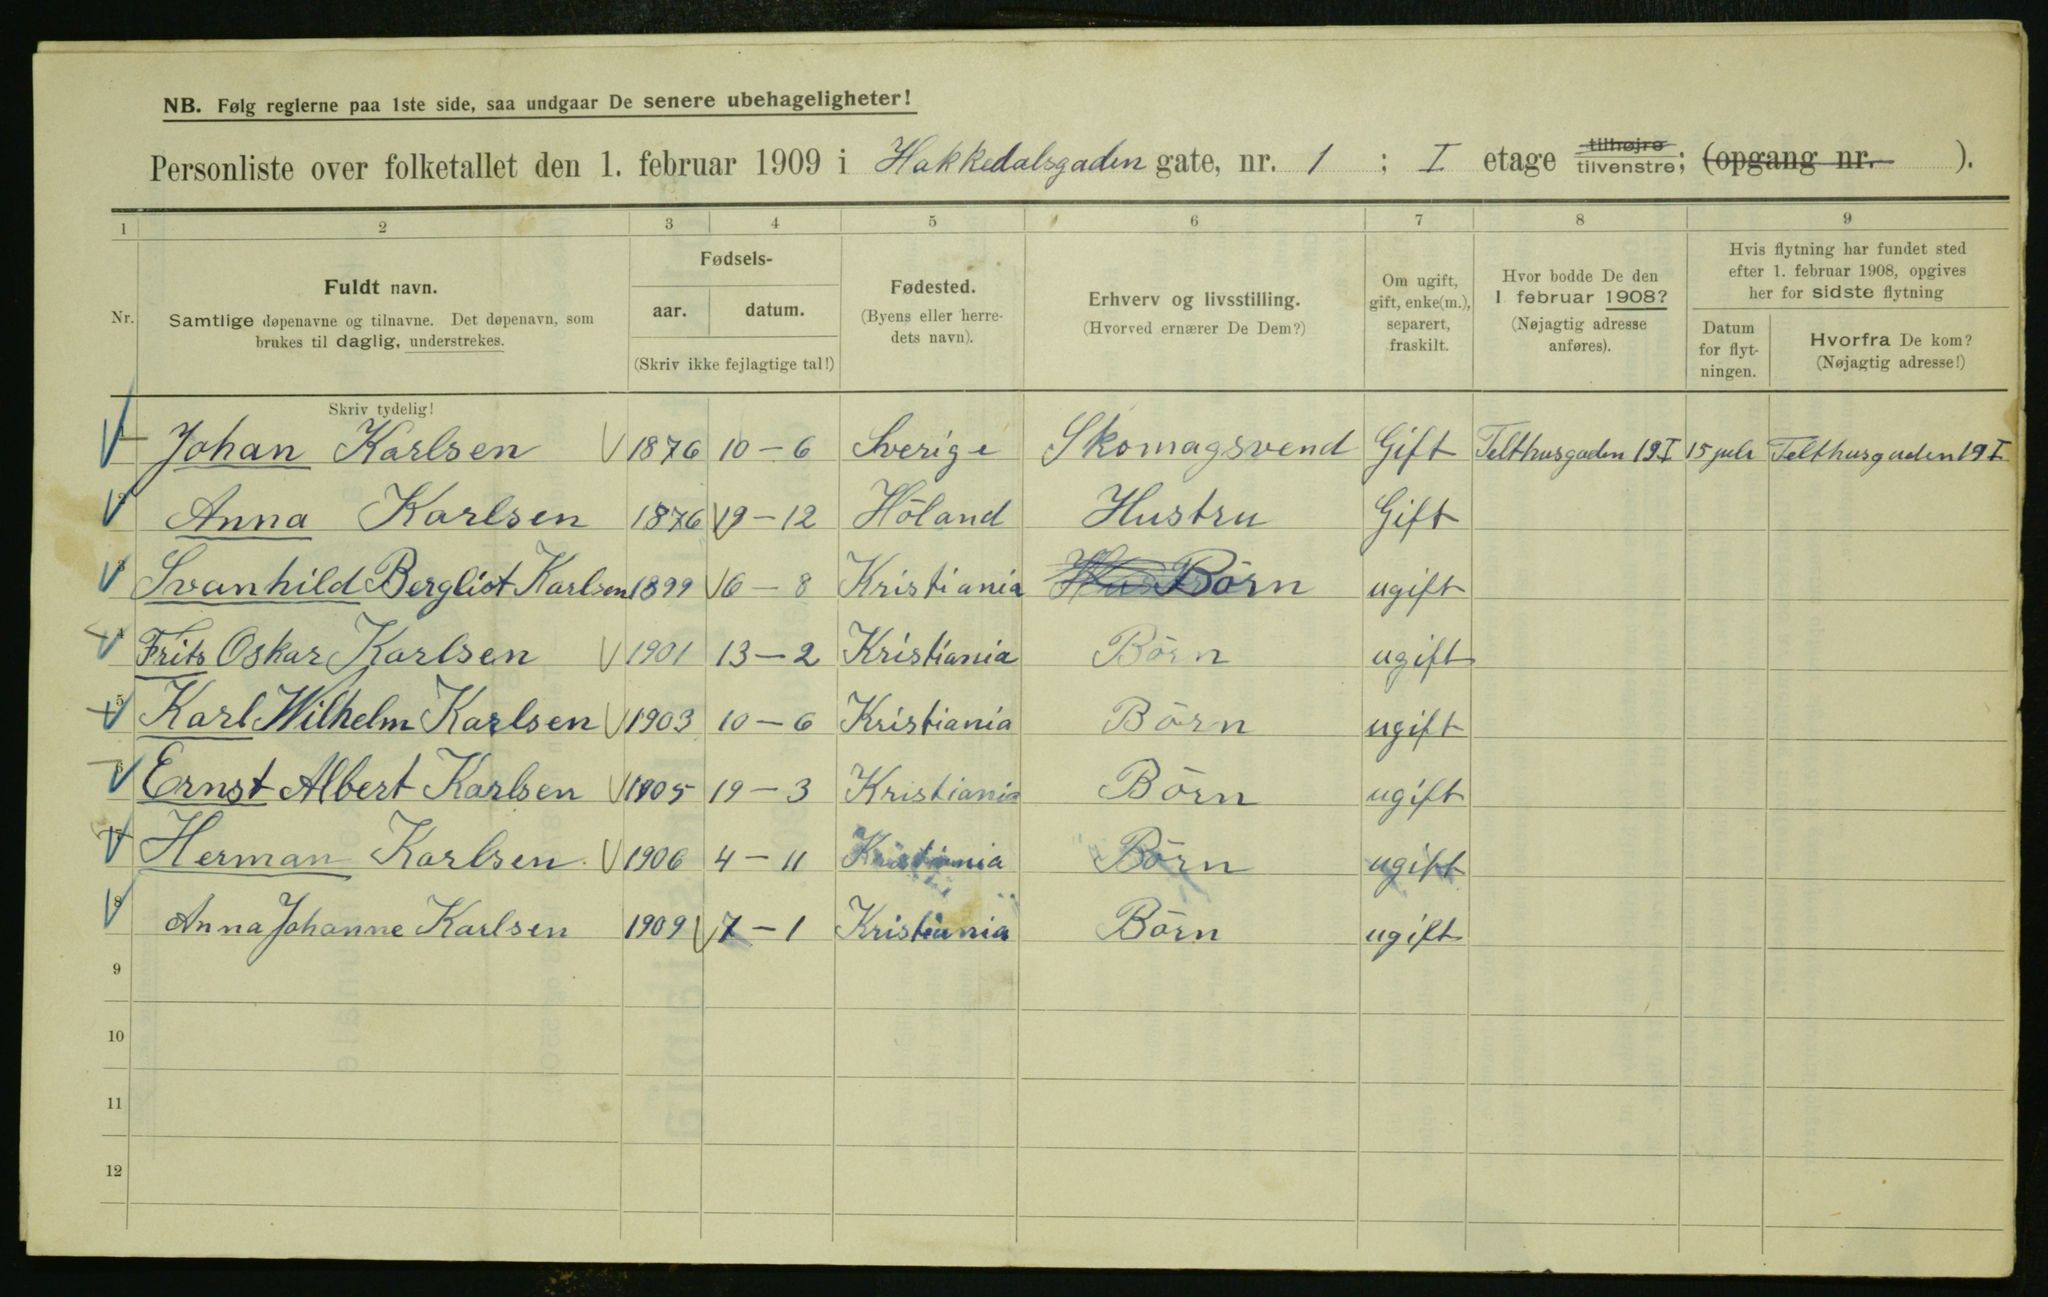 NB. Følg reglerne paa 1ste side, saa undgaar De senere ubehageligheter!
Personliste over folketallet den 1. februar 1909 i Hakkedalsgaden gate, nr. 1 ; I etage tilhøjre tilvenstre; (opgang nr. ).
1 2 3 4 5 6 7 8 9
Nr.
Fuldt navn.
Samtlige døpenavne og tilnavne. Det døpenavn, som
brukes til daglig, understrekes.
Fødsels-
aar. datum.
(Skriv ikke fejlagtige tal!)
Fødested.
(Byens eller herre-
dets navn).
Erhverv og livsstilling.
(Hvorved ernærer De Dem?)
Om ugift,
gift, enke(m.),
separert,
fraskilt.
Hvor bodde De den
1 februar 1908?
(Nøjagtig adresse
anføres).
Hvis flytning har fundet sted
efter 1. februar 1908, opgives
her for sidste flytning
Datum
for flyt-
ningen.
Hvorfra De kom?
(Nøjagtig adresse!)
Skriv tydelig!
Johan Karlsen 1876 10-6 Sverige Skomagsvend Gift Telthusgaden 19 I 15 juli Telthusgaden 19 I
Anna Karlsen 1876 19-12 Höland Hustru Gift
3 Svanhild Bergliot Karlsen 1899 6-8 Kristiania Hus Börn ugift
4 Frits Oskar Karlsen 1901 13-2 Kristiania Börn ugift
5 Karl Wilhelm Karlsen 1903 10-6 Kristiania Börn ugift
6 Ernst Albert Karlsen 1905 19-3 Kristiania Börn ugift
Herman Karlsen 1906 4-11 Kristiania Börn ugift
8 Anna Johanne Karlsen 1909 7-1 Kristiania Börn ugift
9
10
11
12